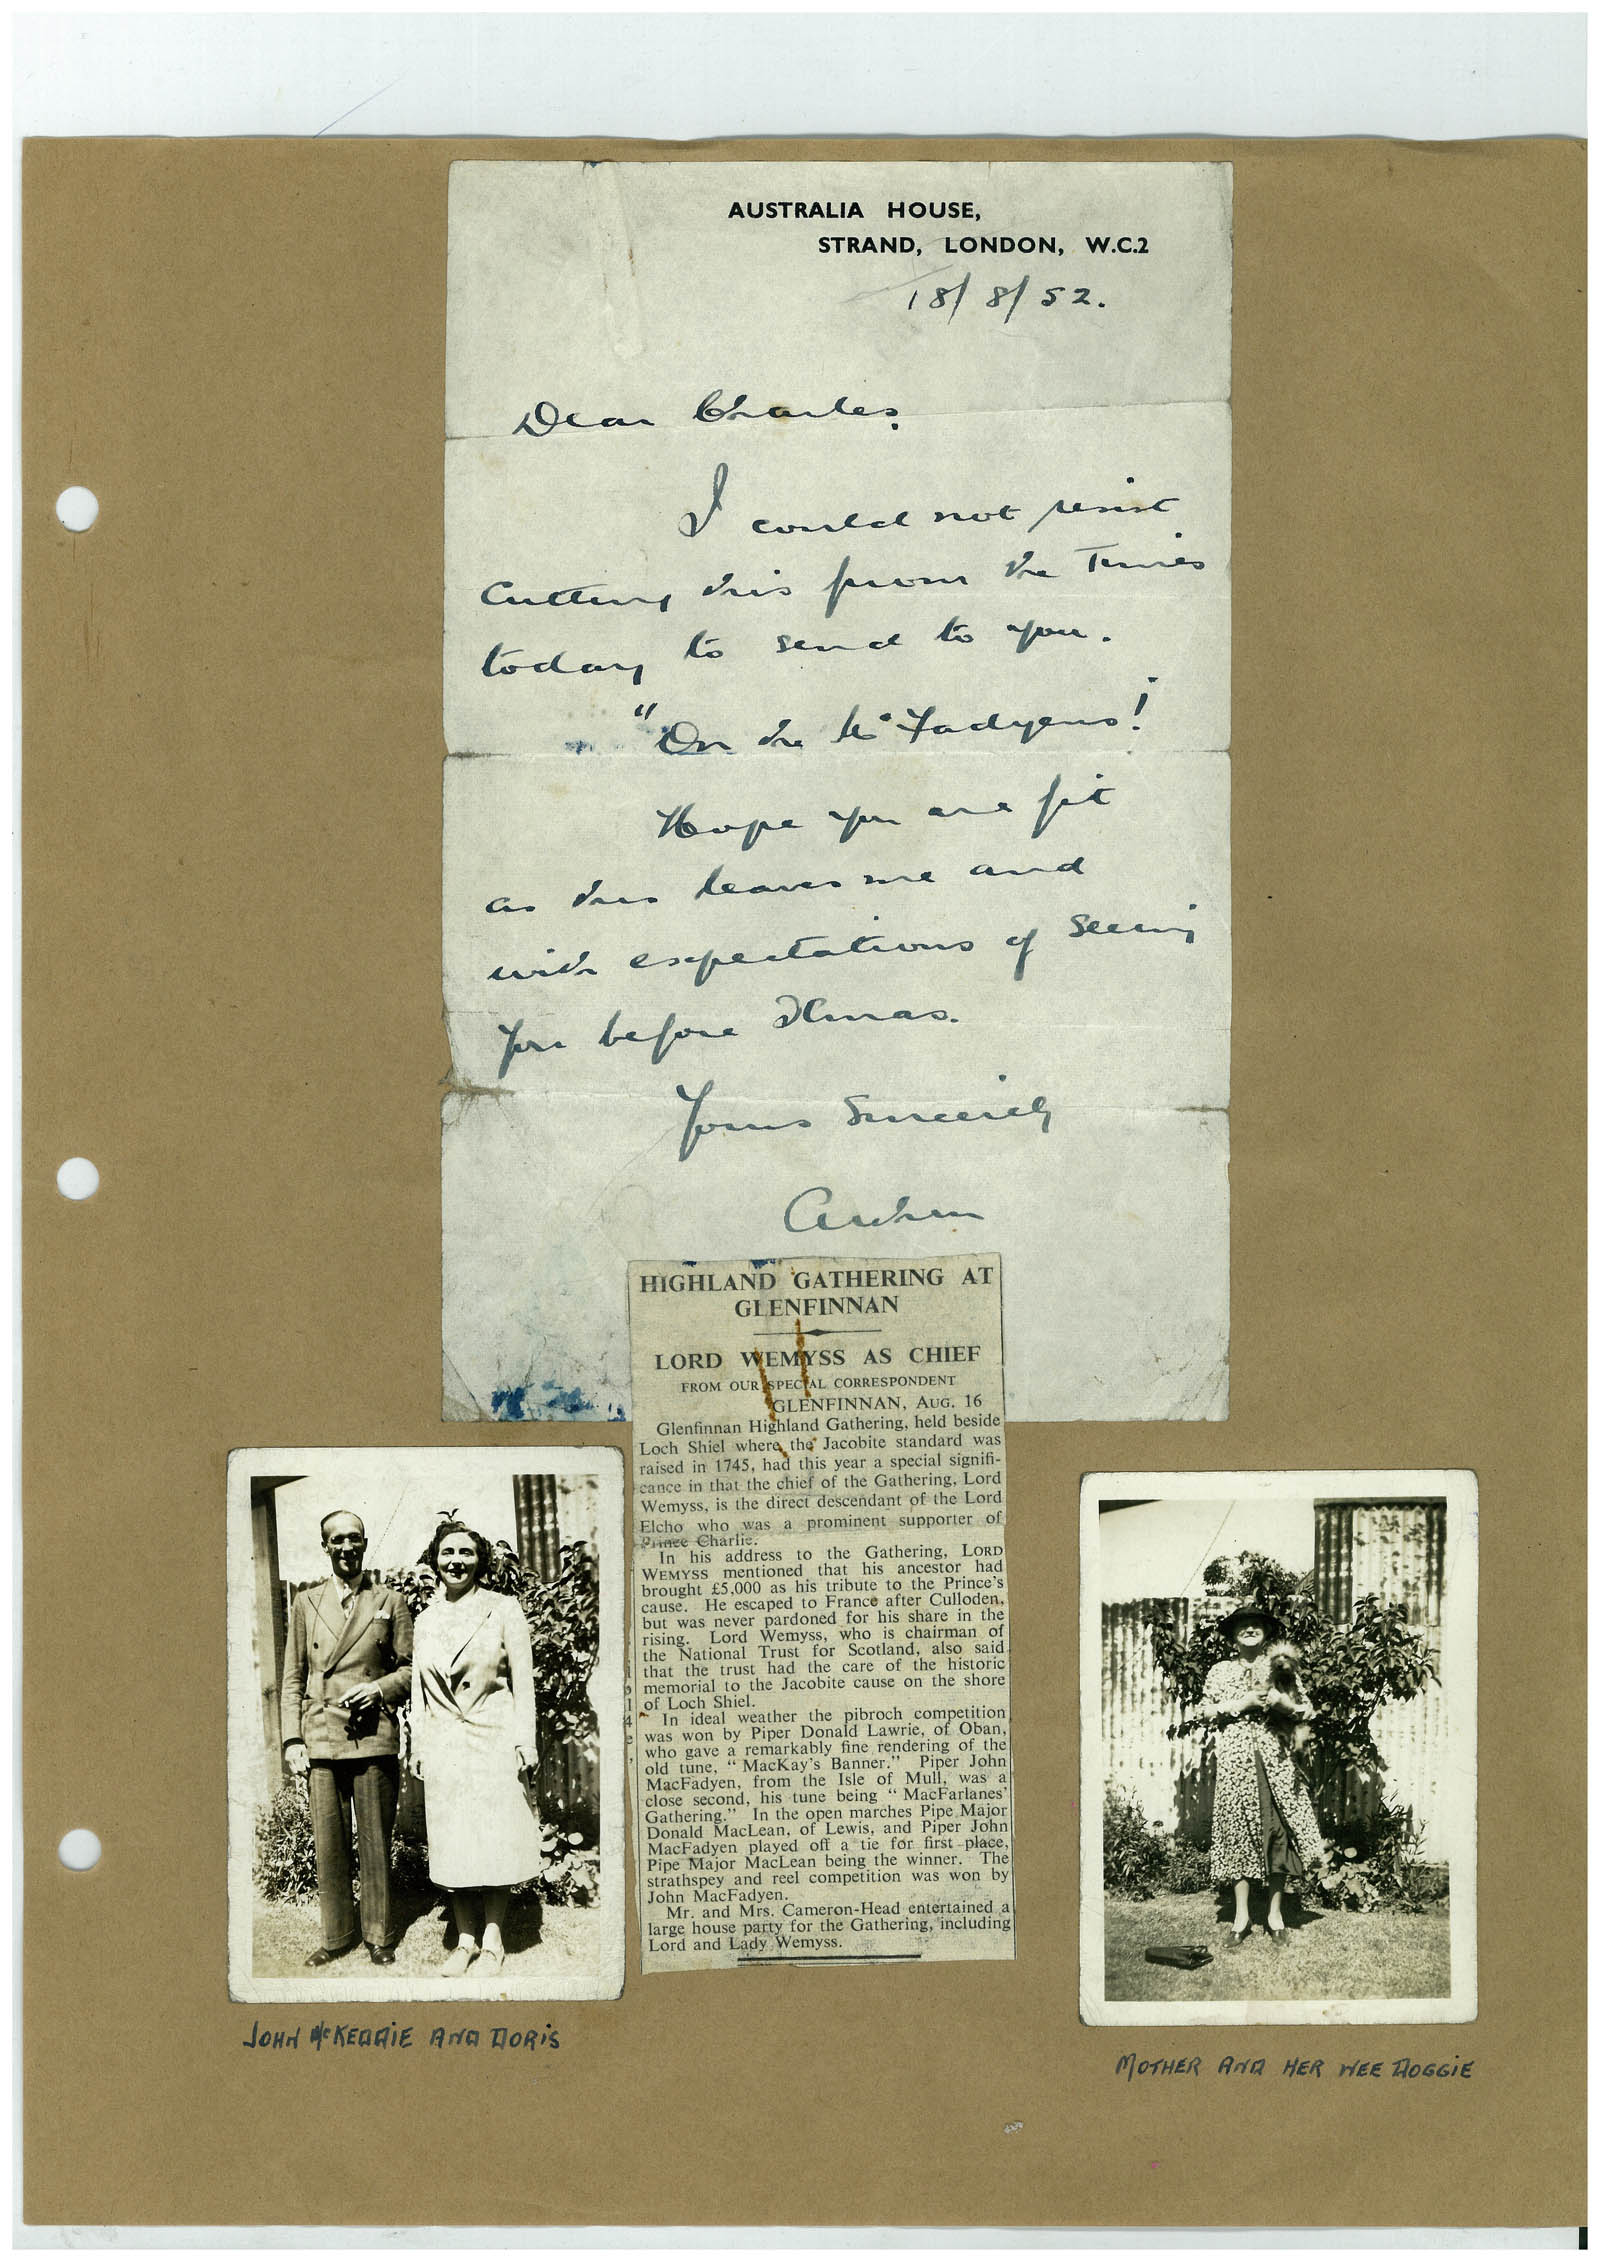 AUSTRALIA HOUSE,
STRAND, LONDON, W.C.2
18/8/52.
Dear Charles,
I could not resist
cutting this from the Times
today to send to you.
"On the McFadyens!
Hope you are fit
as this leaves me and
with expectations of seeing
you before Xmas.
Yours Sincerely
HIGHLAND GATHERING AT
GLENFINNAN
LORD WEMYSS AS CHIEF
FROM OUR SPECIAL CORRESPONDENT
GLENFINNAN, AUG. 16
Glenfinnan Highland Gathering, held beside
Loch Shiel where the Jacobite standard was
raised in 1745, had this year a special signifi-
cance in that the chief of the Gathering, Lord
Wemyss, is the direct descendant of the Lord
Elcho who was a prominent supporter of
Prince Charlie.
In his address to the Gathering, LORD
WEMYSS mentioned that his ancestor had
brought £5,000 as his tribute to the Prince's
cause. He escaped to France after Culloden,
but was never pardoned for his share in the
rising. Lord Wemyss, who is chairman of
the National Trust for Scotland, also said
that the trust had the care of the historic
memorial to the Jacobite cause on the shore
of Loch Shiel.
In ideal weather the pibroch competition
was won by Piper Donald Lawrie, of Oban,
who gave a remarkably fine rendering of the
old tune, "MacKay's Banner." Piper John
MacFadyen, from the Isle of Mull, was a
close second, his tune being "MacFarlanes'
Gathering." In the open marches Pipe Major
Donald MacLean, of Lewis, and Piper John
MacFadyen played off a tie for first place,
Pipe Major MacLean being the winner. The
strathspey and reel competition was won by
John MacFadyen.
Mr. and Mrs. Cameron-Head entertained a
large house party for the Gathering, including
Lord and Lady Wemyss.
JOHN McKEDDIE AND DORIS
MOTHER AND HER WEE DOGGIE